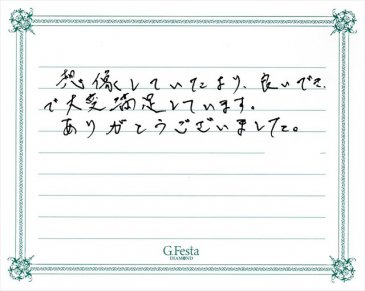 想像していたより、良いでき
で大変満足しています。
ありがとうございました。
G.Festa
DIAMOND